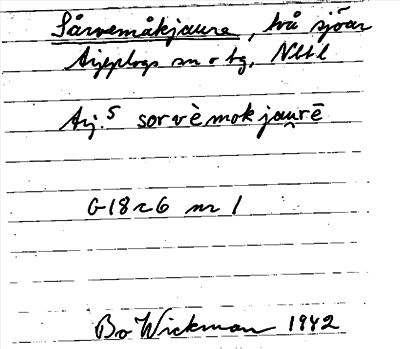 Sårvemåkjaure, två sjöar
Arjeplogs sn o tg, Nbtl
Arj. 5 sorvèmok jau̯rē
G 18 c 6 nr 1
Bo Wickman 1942